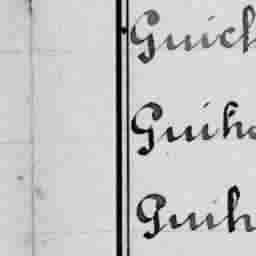 Guich
Guiho
Guih